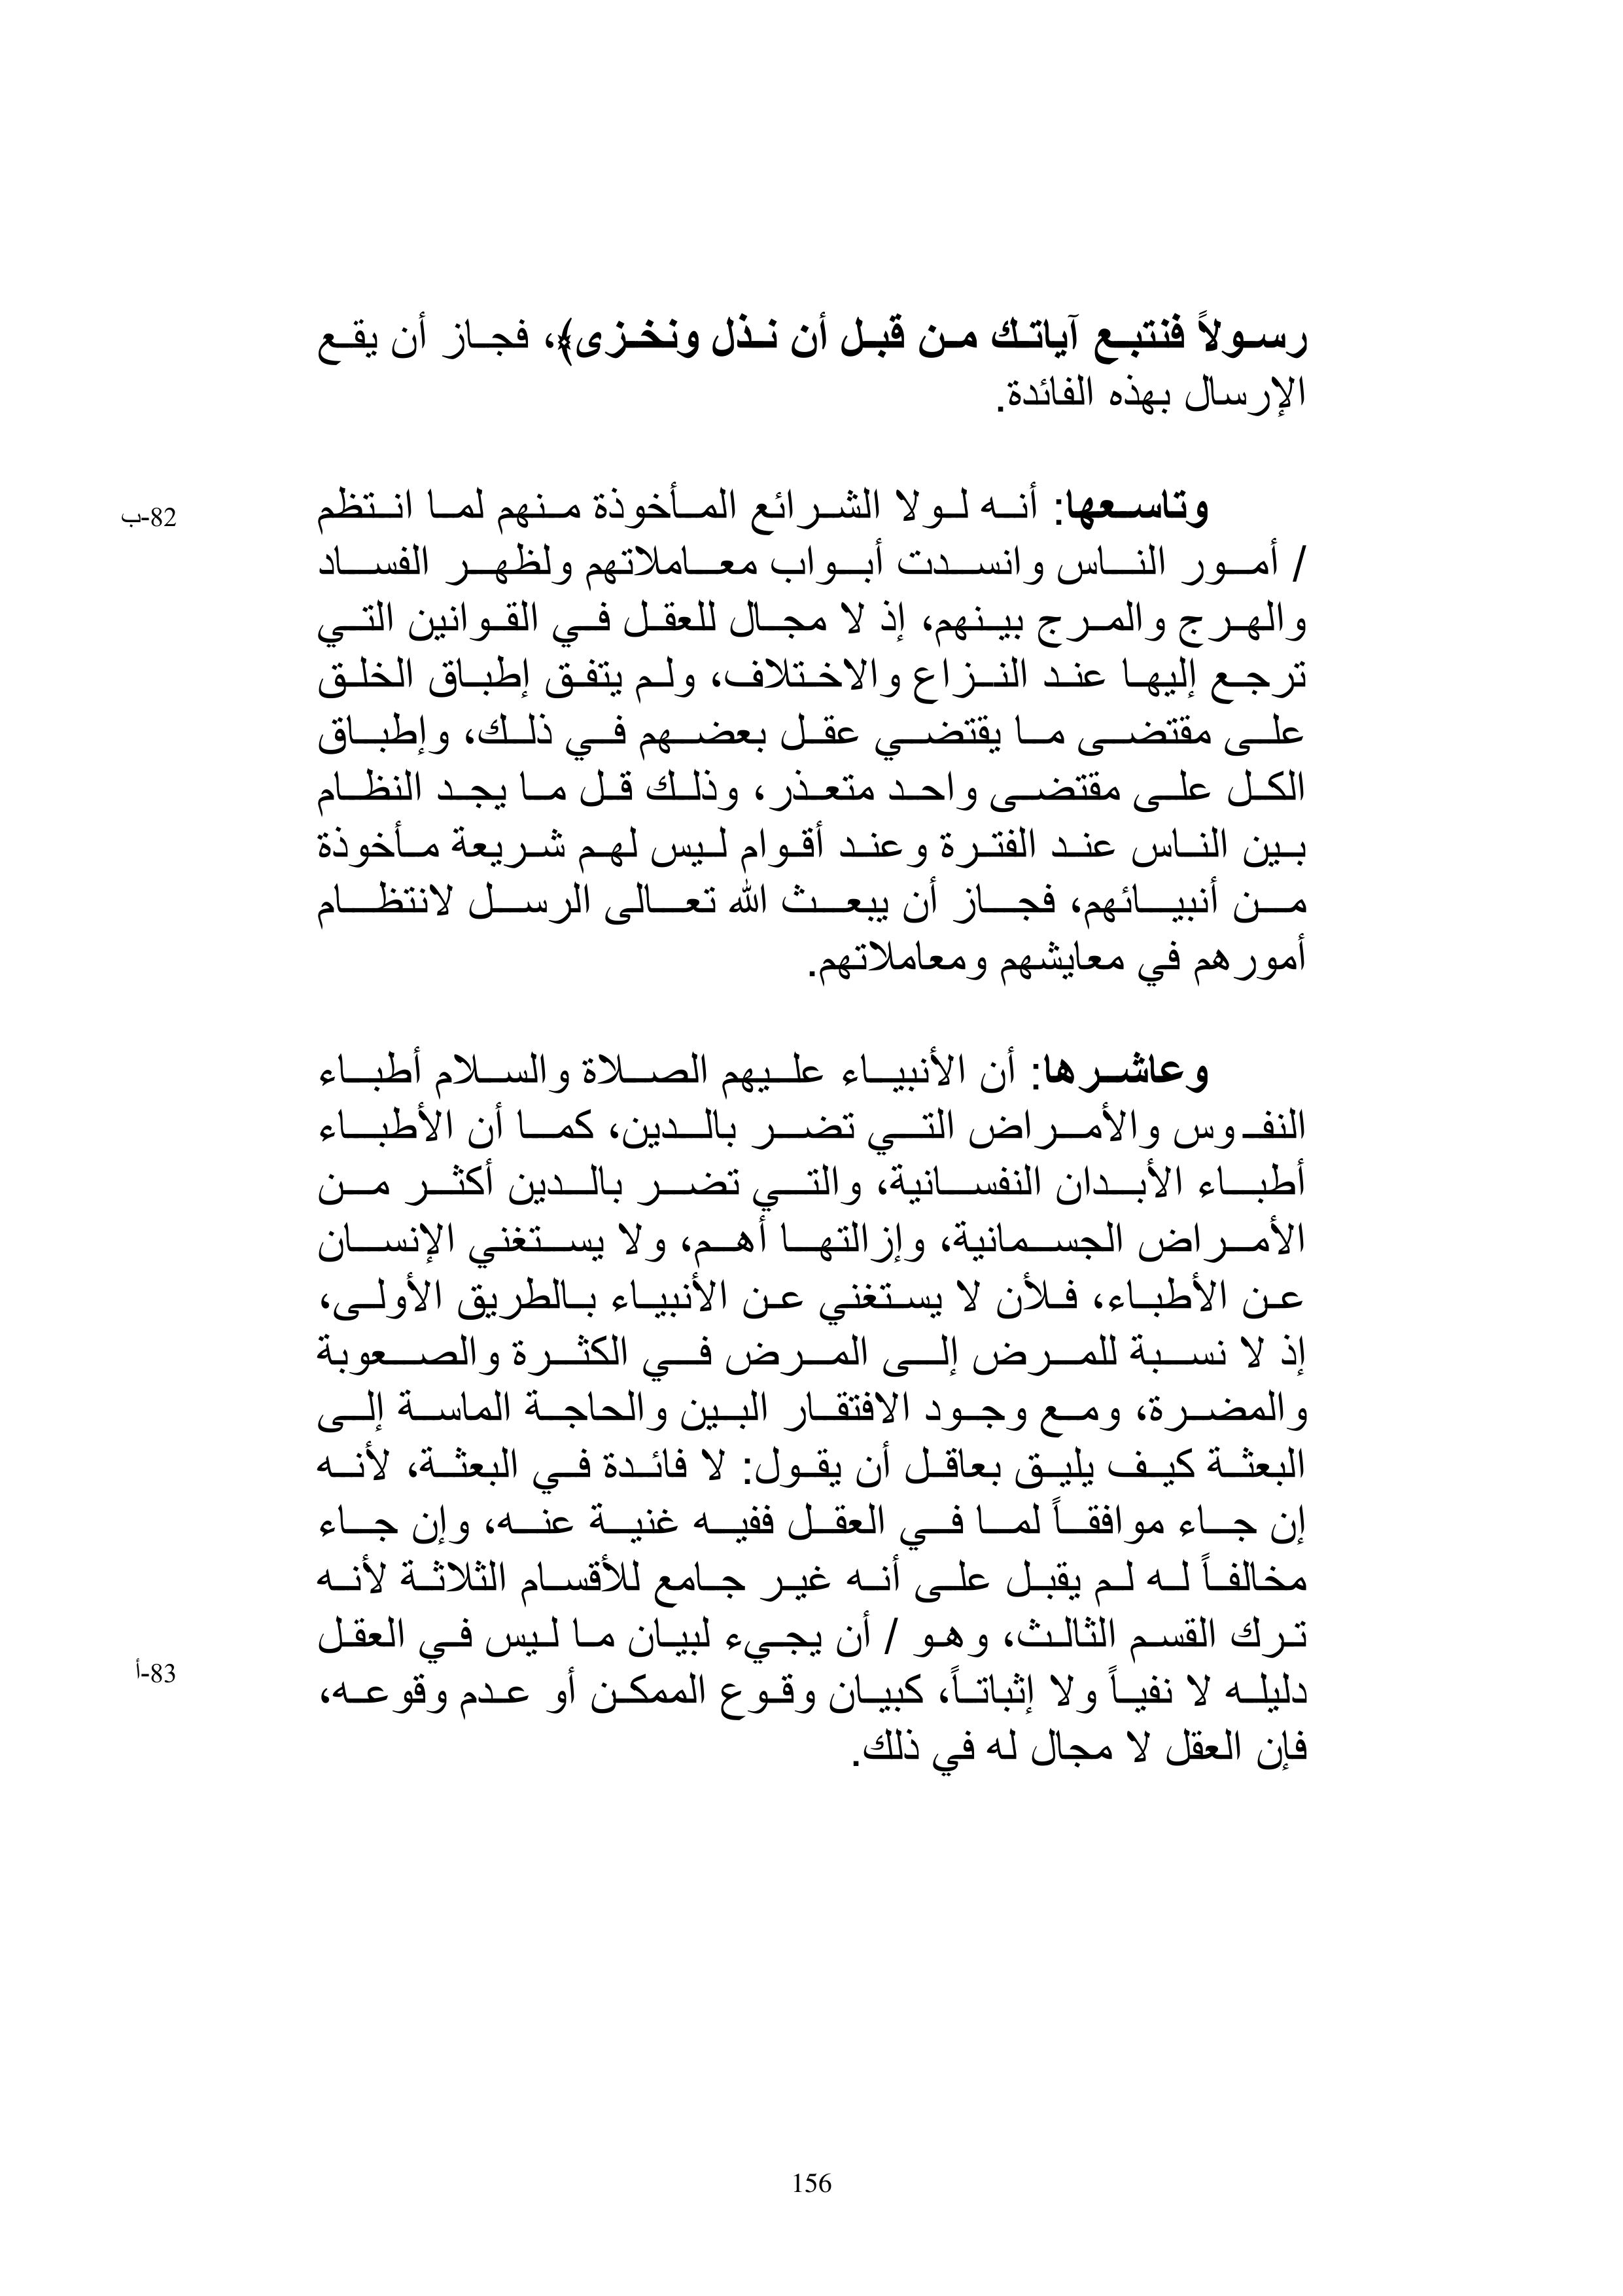 رسولاً فنتبع آياتك من قبل أن نذل ونخزى﴾، فجاز أن يقع
الإرسال بهذه الفائدة.
وتاسعها: أنه لولا الشرائع المأخوذة منهم لما انتظم
82-ب
/ أمور الناس وانسدت أبواب معاملاتهم ولظهر الفساد
والهرج والمرج بينهم، إذ لا مجال للعقل في القوانين التي
ترجع إليها عند النزاع والاختلاف، ولم يتفق إطباق الخلق
على مقتضى ما يقتضي عقل بعضهم في ذلك، وإطباق
الكل على مقتضى واحد متعذر، وذلك قل ما يجد النظام
بين الناس عند الفترة وعند أقوام ليس لهم شريعة مأخوذة
من أنبيائهم، فجاز أن يبعث الله تعالى الرسل لانتظام
أمورهم في معايشهم ومعاملاتهم.
وعاشرها: أن الأنبياء عليهم الصلاة والسلام أطباء
النفوس والأمراض التي تضر بالدين، كما أن الأطباء
أطباء الأبدان النفسانية، والتي تضر بالدين أكثر من
الأمراض الجسمانية، وإزالتها أهم، ولا يستغني الإنسان
عن الأطباء، فلأن لا يستغني عن الأنبياء بالطريق الأولى،
إذ لا نسبة للمرض إلى المرض في الكثرة والصعوبة
والمضرة، ومع وجود الافتقار البين والحاجة الماسة إلى
البعثة كيف يليق بعاقل أن يقول: لا فائدة في البعثة، لأنه
إن جاء موافقاً لما في العقل ففيه غنية عنه، وإن جاء
مخالفاً له لم يقبل على أنه غير جامع للأقسام الثلاثة لأنه
ترك القسم الثالث، وهو / أن يجيء لبيان ما ليس في العقل
83-أ
دليله لا نفياً ولا إثباتاً، كبيان وقوع الممكن أو عدم وقوعه،
فإن العقل لا مجال له في ذلك.
156